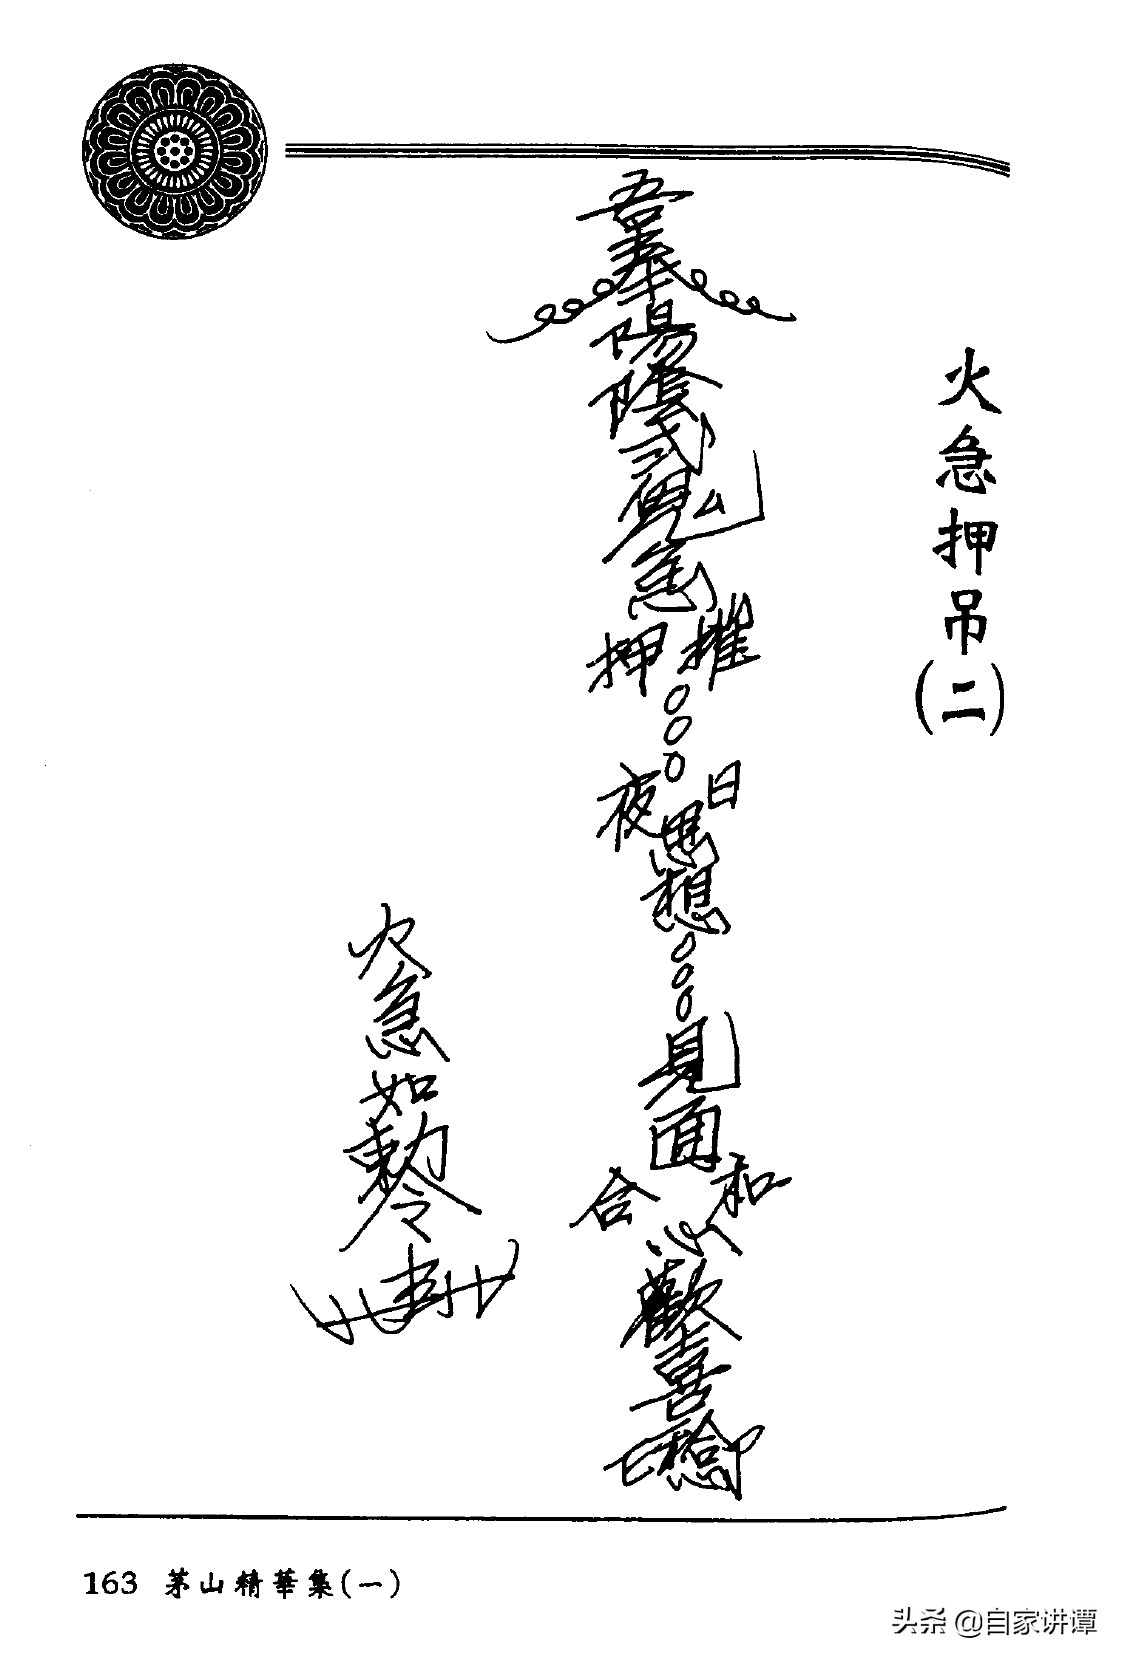 火急押吊(二)
吾奉
陽陰
急
押 摧
夜 日
思想
見面
合 和
心
歡喜
火急如敕令
163 茅山精華集(一)
头条 @自家讲谭